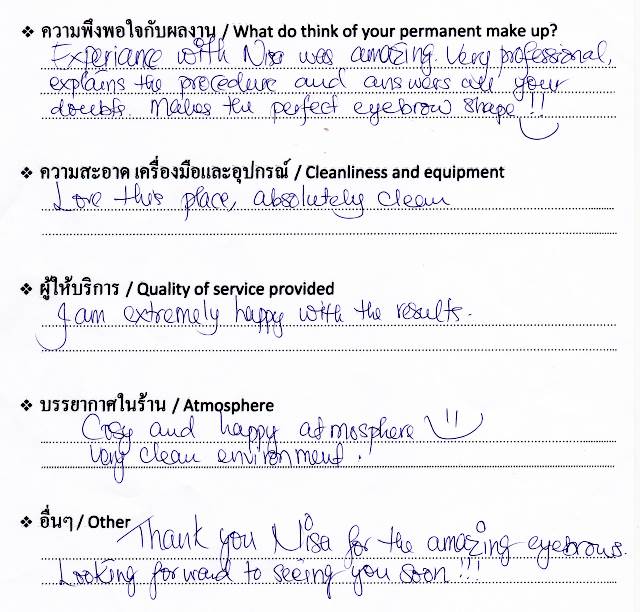 ❖ ความพึงพอใจกับผลงาน / What do think of your permanent make up?
Experiance with Nisa was amazing. Very professional,
explains the procedure and answers all your
doubts. Makes the perfect eyebrow shape!!
❖ ความสะอาด เครื่องมือและอุปกรณ์ / Cleanliness and equipment
Love this place, absolutely clean
❖ ผู้ให้บริการ / Quality of service provided
I am extremely happy with the results.
❖ บรรยากาศในร้าน / Atmosphere
Cosy and happy atmosphere
Very clean environment.
❖ อื่นๆ / Other
Thank you Nisa for the amazing eyebrows.
Looking forward to seeing you soon!!!